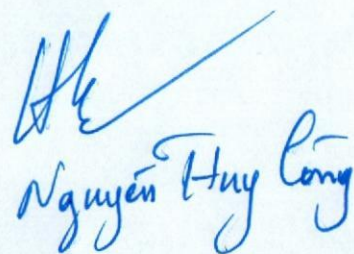 Nguyễn Huy Công